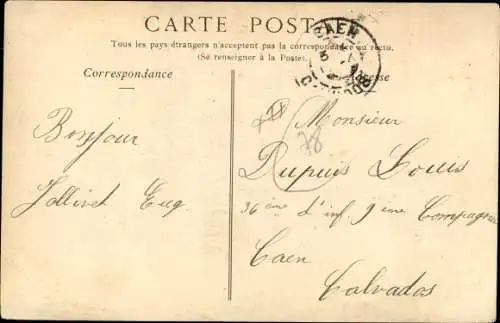 CARTE POST
Tous les pays étrangers n'acceptent pas la correspondance au recto.
(Se renseigner à la Poste).
CAEN
Correspondance
Adresse
Monsieur
Bonjour
Dupuis Louis
Jollivet Eug.
36 ème d'inf. 9 ème Compagnie
Caen
Calvados